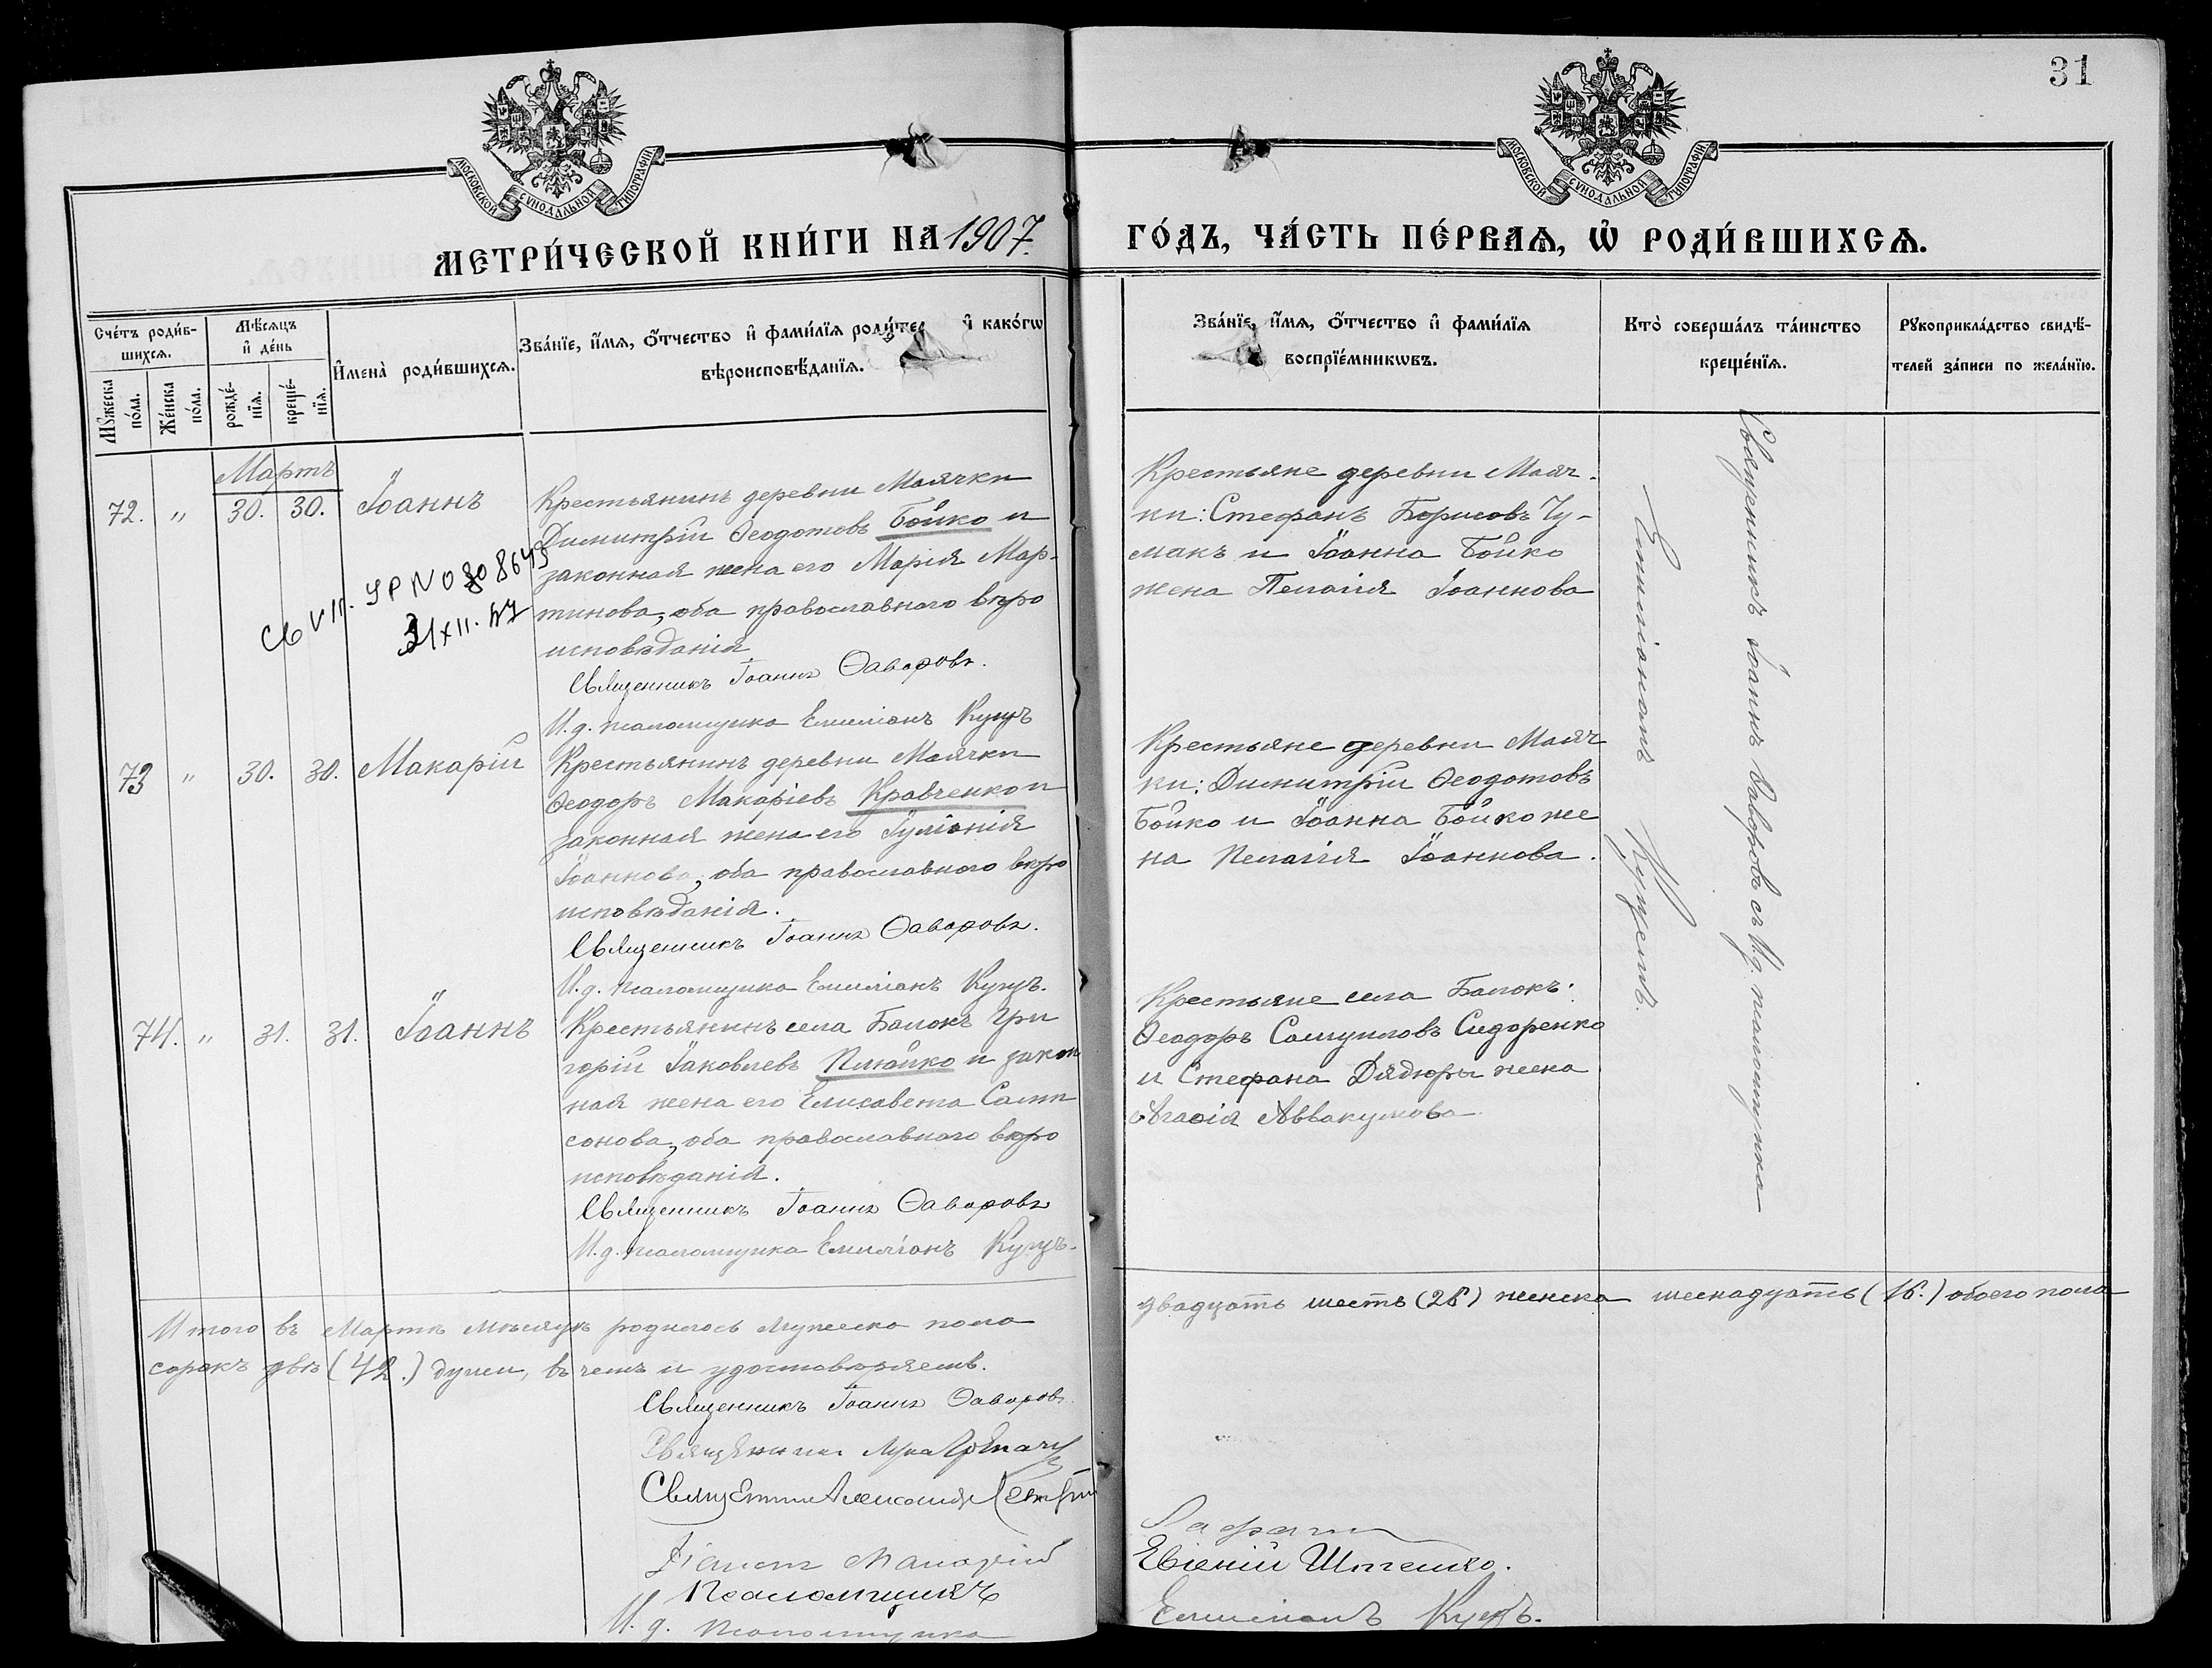 31
МОСКОВСКОЙ СѴНОДАЛЬНОЙ ТИПОГРАФІИ
МОСКОВСКОЙ СѴНОДАЛЬНОЙ ТИПОГРАФІИ
МЕТРИ́ЧЕСКОЙ КНИ́ГИ НА 1907 ГО́ДЪ, ЧА́СТЬ ПЕ́РВАѦ, Ѡ҆ РОДИ́ВШИХСѦ.
Сче́тъ роди́в-
шихсѧ.
Мꙋ́жеска по́ла.
Же́нска по́ла.
Мѣ́сѧцъ
и҆ де́нь
рожде́-нїѧ.
креще́-нїѧ.
И҆мена̀ роди́вшихсѧ.
Зва́нїе, и҆́мѧ, ѻ҆́тчество и҆ фами́лїѧ роди́те и҆ како́гѡ
вѣроисповѣ́данїѧ.
Зва́нїе, и҆́мѧ, ѻ҆́тчество и҆ фами́лїѧ
воспрїе́мникѡвъ.
Кто̀ соверша́лъ та́инство
креще́нїѧ.
Рꙋкоприкла́дство свидѣ́-
телей за́писи по жела́нїю.
Мартъ
72. " 30. 30. Іоаннъ
Крестьянинъ деревни Маячки
Димитрій Ѳеодотовъ Бойко и
законная жена его Марія Мар-
тинова, оба православнаго вѣро
исповѣданія
Священникъ Іоаннъ Ѳаворовъ.
И.д. псаломщика Емиліанъ Купъ
31 XII. 47
Крестьяне деревни Маяч-
ки: Стефанъ Борисовъ Чу-
макъ и Іоанна Бойко
жена Пелагія Іоаннова
73 " 30. 30. Макарій
Крестьянинъ деревни Маячки
Ѳеодоръ Макаріевъ Кравченко и
законная жена его Іуліанія
Іоаннова, оба православнаго вѣро
исповѣданія.
Священникъ Іоаннъ Ѳаворовъ.
И.д. псаломщика Емиліанъ Купъ.
Крестьяне деревни Маяч
ки: Димитрій Ѳеодотовъ
Бойко и Іоанна Бойко же
на Пелагія Іоаннова.
74. " 31. 31. Іоаннъ
Крестьянинъ села Балокъ Гри
горій Іаковлевъ Плюйко и закон
ная жена его Елисавета Самп
сонова, оба православнаго вѣро
исповѣданія.
Священникъ Іоаннъ Ѳаворовъ
И.д. псаломщика Емиліанъ Купъ.
Крестьяне села Балокъ:
Ѳеодоръ Самуиловъ Сидоренко
и Стефана Дядюры жена
Агаѳія Аввакумова
Священникъ Іоаннъ Ѳаворовъ съ И.д. псаломщика
Емиліаномъ
Итого въ Мартѣ мѣсяцѣ родилось мужеска пола двадцать шесть (26) женска шеснадцать (16.) обоего пола
сорокъ двѣ (42.) души, въ чемъ и удостовѣряемъ.
Священникъ Іоаннъ Ѳаворовъ.
Священникъ Лука
Священникъ Александръ
Псаломщикъ Евгеній
И.д. псаломщика Емиліанъ Купъ.